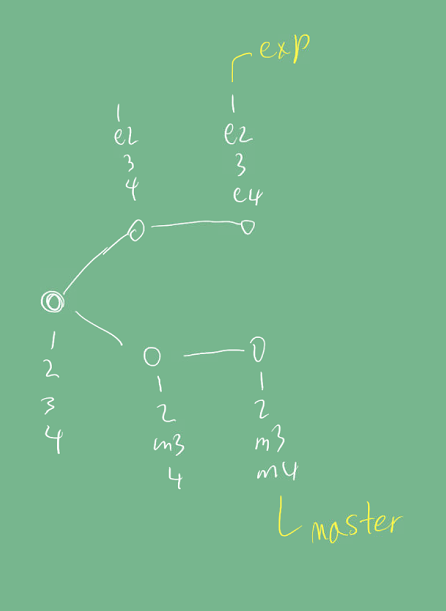 exp
1
e2
3
4
1
e2
3
e4
1
2
3
4
1
2
m3
4
1
2
m3
m4
master